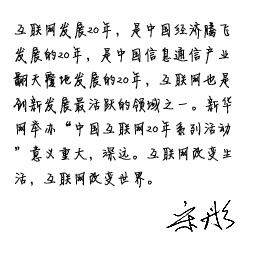 互联网发展20年，是中国经济腾飞
发展的20年，是中国信息通信产业
翻天覆地发展的20年，互联网也是
创新发展最活跃的领域之一。新华
网举办“中国互联网20年系列活动
”意义重大，深远。互联网改变生
活，互联网改变世界。